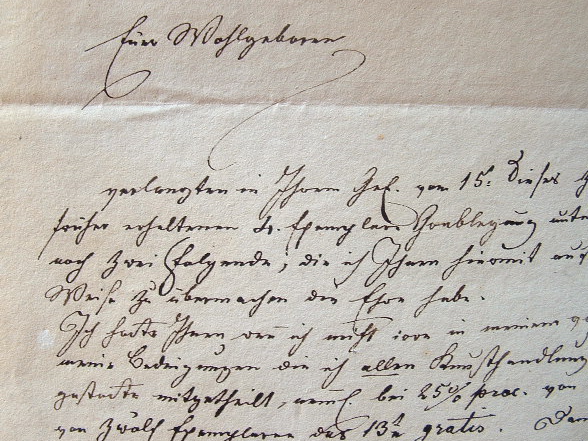 Euer Wohlgeboren
verlangten in Ihrem Gef. vom 15t. dieses
früher erhaltenen Exemplare Grablegung
noch zwei folgende, die ich Ihnen hiermit auf
Weise zu übermachen die Ehre habe.
Ich hatte Ihnen wenn ich nicht irre in meinem
meine Bedingungen die ich allen Kunsthandlung
mitgetheilt, bei 25% proc. von
von zwölf Exemplaren das 13te gratis.